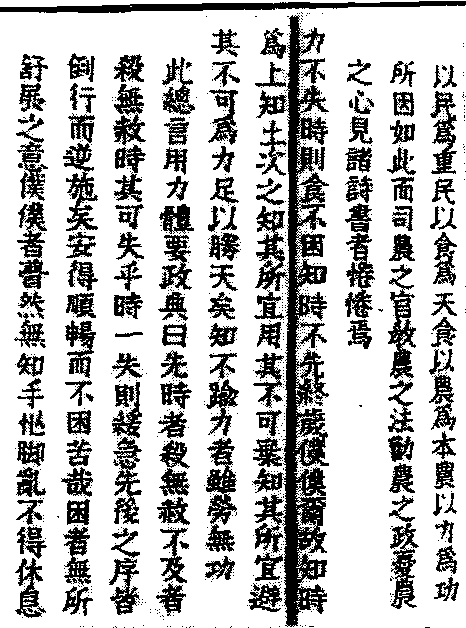 以民爲重民以食爲天食以農爲本農以力爲功
所因如此而司農之官教農之法勸農之政憂農
之心見諸詩書者惓惓焉
力不失時則食不困知時不先終歲僕僕爾故知時
爲上知土次之知其所宜用其不可棄知其所宜避
其不可爲力足以勝天矣知不踰力者雖勞無功
此總言用力體要政典曰先時者殺無赦不及者
殺無赦時其可失乎時一失則緩急先後之序皆
倒行而逆施矣安得順暢而不困苦哉困者無所
舒展之意僕僕者瞀然無知手忙脚亂不得休息